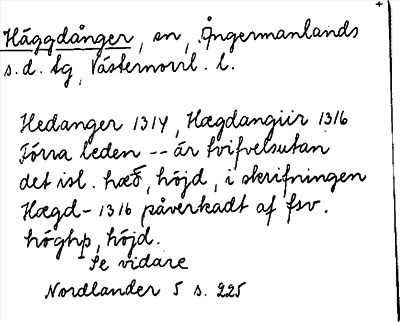 Häggdånger, sn, Ångermanlands
s.d. tg, Västernorrl. l.
Hedanger 1314, Hægdangiir 1316
Förra leden -- är tvifvelsutan
det isl. hæð, höjd, i skrifningen
Hægd- 1316 påverkadt af fsv.
höghþ, höjd.
Se vidare
Nordlander 5 s. 225